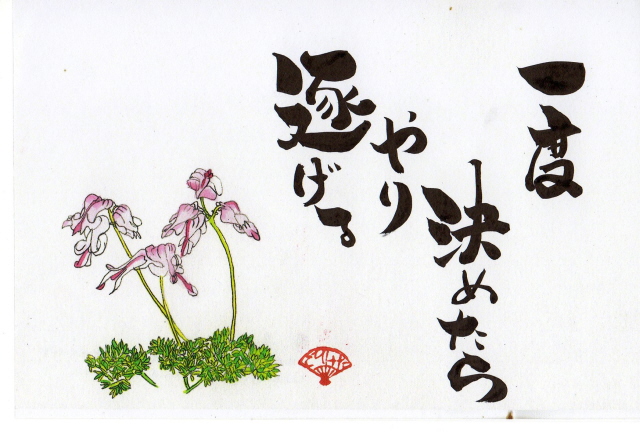 一度
決めたら
やり
遂げる